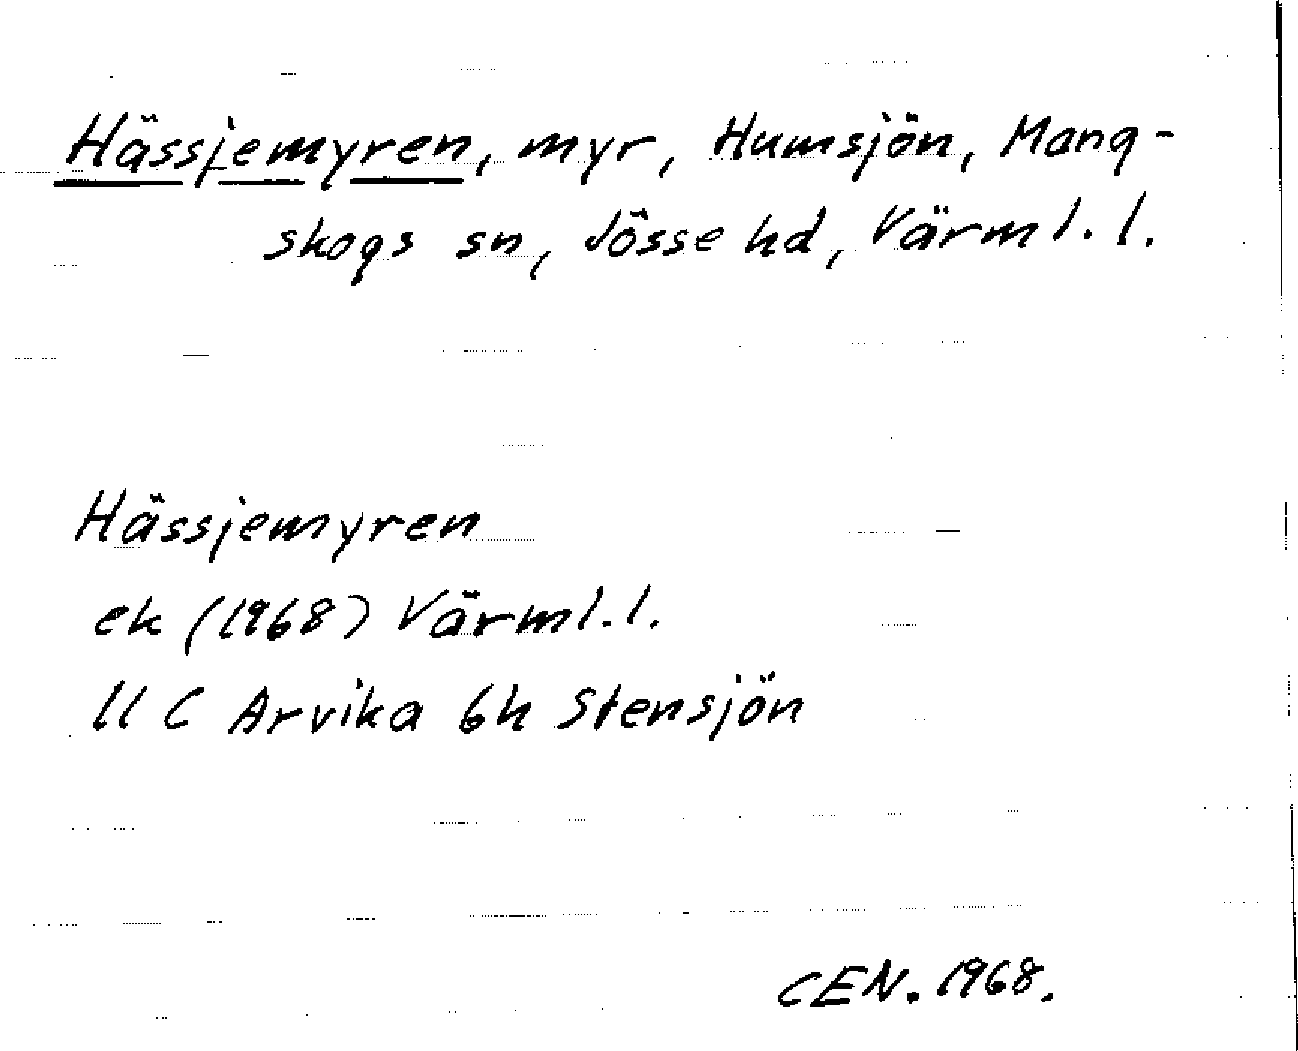 Hässjemyren, myr, Humsjön, Mang-
skogs sn, Jösse hd, Värml. l.
Hässjemyren
ek (1968) Värml. l.
11 C Arvika 6h Stensjön
CEN. 1968.